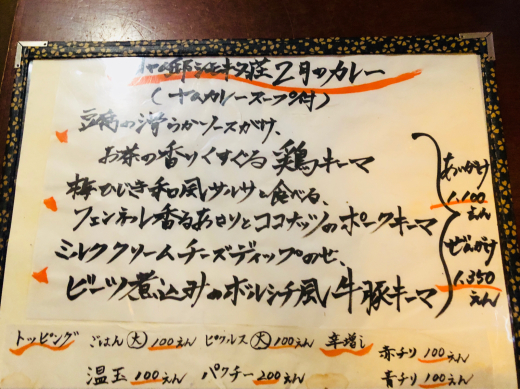 ヤム邸シモキタ荘 2月のカレー
(ヤムカレースープ付)
豆腐の滑らかソースがけ、
お茶の香りくすぐる 鶏キーマ
梅ひじき和風サルサと食べる、
フェンネル香るあさりとココナッツのポークキーマ
ミルククリームチーズディップのせ、
ビーツ煮込みのボルシチ風 牛豚キーマ
あいがけ
1,100
えん
ぜんがけ
1,350
えん
トッピング ごはん(大)100えん ピクルス(大)100えん 辛増し 赤チリ100えん
温玉100えん パクチー200えん 青チリ100えん